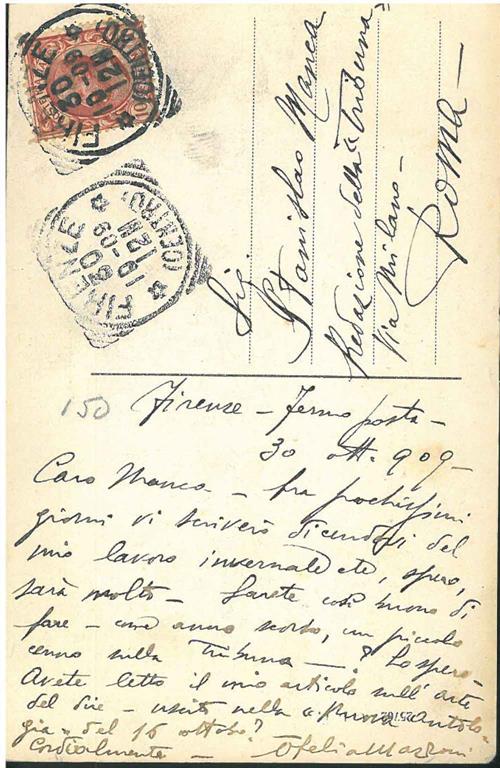 FIRENZE
(CENTRO)
30
10-09
12M
FIRENZE
(CENTRO)
30
10-09
12M
Sig.
Stanislao Manca
Redazione della «Tribuna»
Via Milano -
Roma -
150
Firenze - fermo posta -
30 ott. 909 -
Caro Manca - fra pochissimi
giorni vi scriverò dicendovi del
mio lavoro invernale che, spero,
sarà molto - Sarete così buono di
fare - come anno scorso, un piccolo
cenno sulla Tribuna - ? Lo spero -
Avete letto il mio articolo sull'arte
del dire - uscito nella «Nuova Antolo-
gia» del 16 ottobre?
Cordialmente - Ofelia Mazzoni